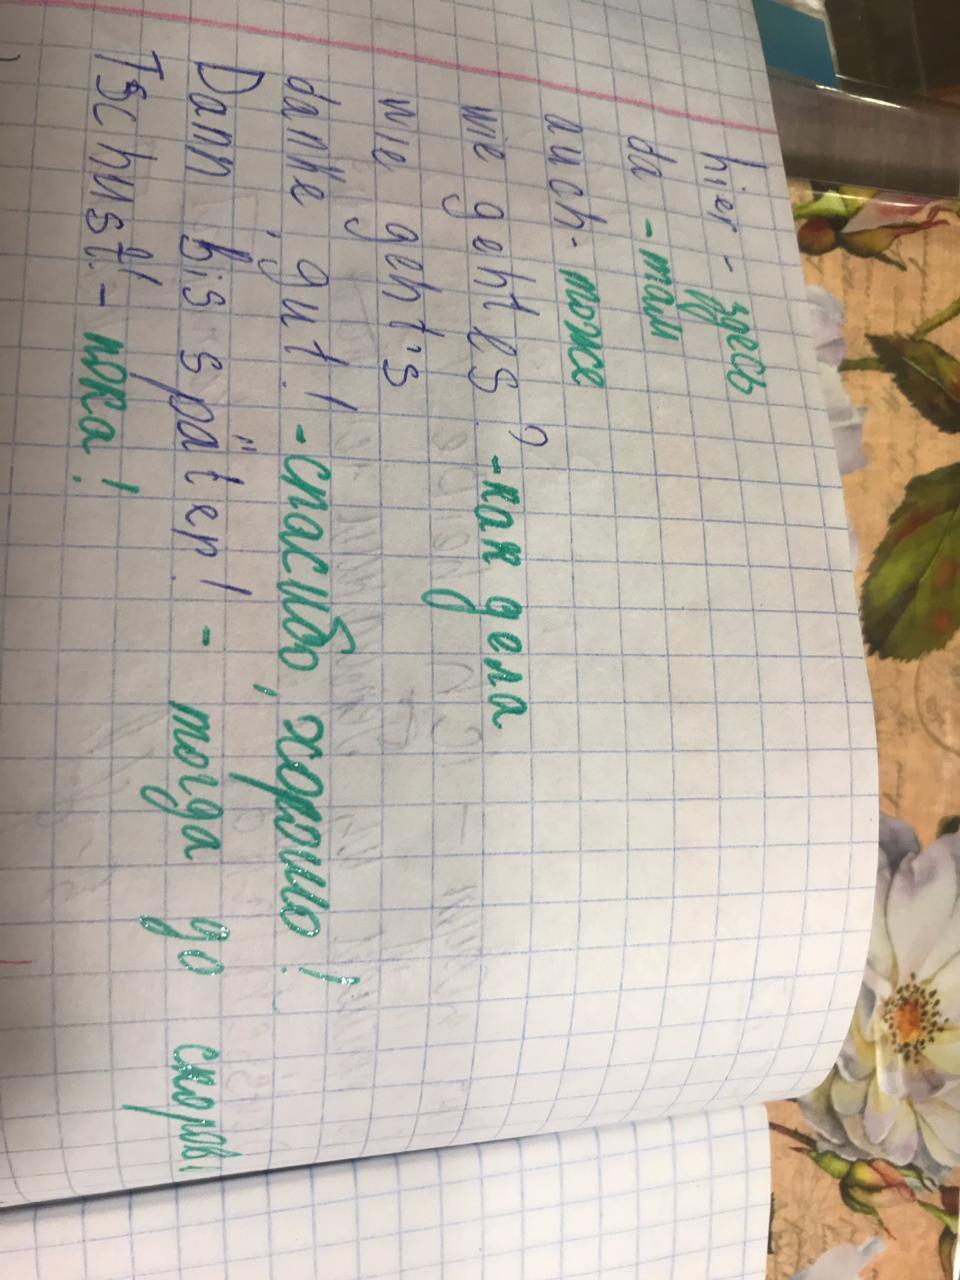 hier - здесь
da - там
auch - тоже
wie geht es? - как дела
wie geht's
danke, gut! - спасибо, хорошо!
Dann bis später! - тогда до скоров
Tschust! - пока!